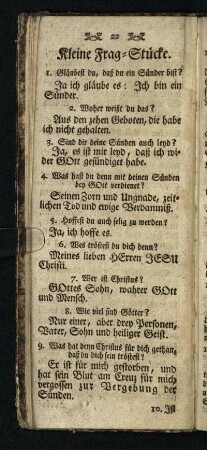 22
Kleine Frag-Stücke.
1. Gläubest du, daß du ein Sünder bist?
Ja ich gläube es: Ich bin ein
Sünder.
2. Woher weißt du das?
Aus den zehen Geboten, die habe
ich nicht gehalten.
3. Sind dir deine Sünden auch leyd?
Ja, es ist mir leyd, daß ich wi-
der GOtt gesündiget habe.
4. Was hast du denn mit deinen Sünden
bey GOtt verdienet?
Seinen Zorn und Ungnade, zeit-
lichen Tod und ewige Verdamniß.
5. Hoffest du auch selig zu werden?
Ja, ich hoffe es.
6. Wes tröstest du dich denn?
Meines lieben HErren JESU
Christi.
7. Wer ist Christus?
GOttes Sohn, wahrer GOtt
und Mensch.
8. Wie viel sind Götter?
Nur einer, aber drey Personen,
Vater, Sohn und heiliger Geist.
9. Was hat denn Christus für dich gethan,
daß du dich sein tröstest?
Er ist für mich gestorben, und
hat sein Blut am Creuz für mich
vergossen zur Vergebung der
Sünden.
10. Ist